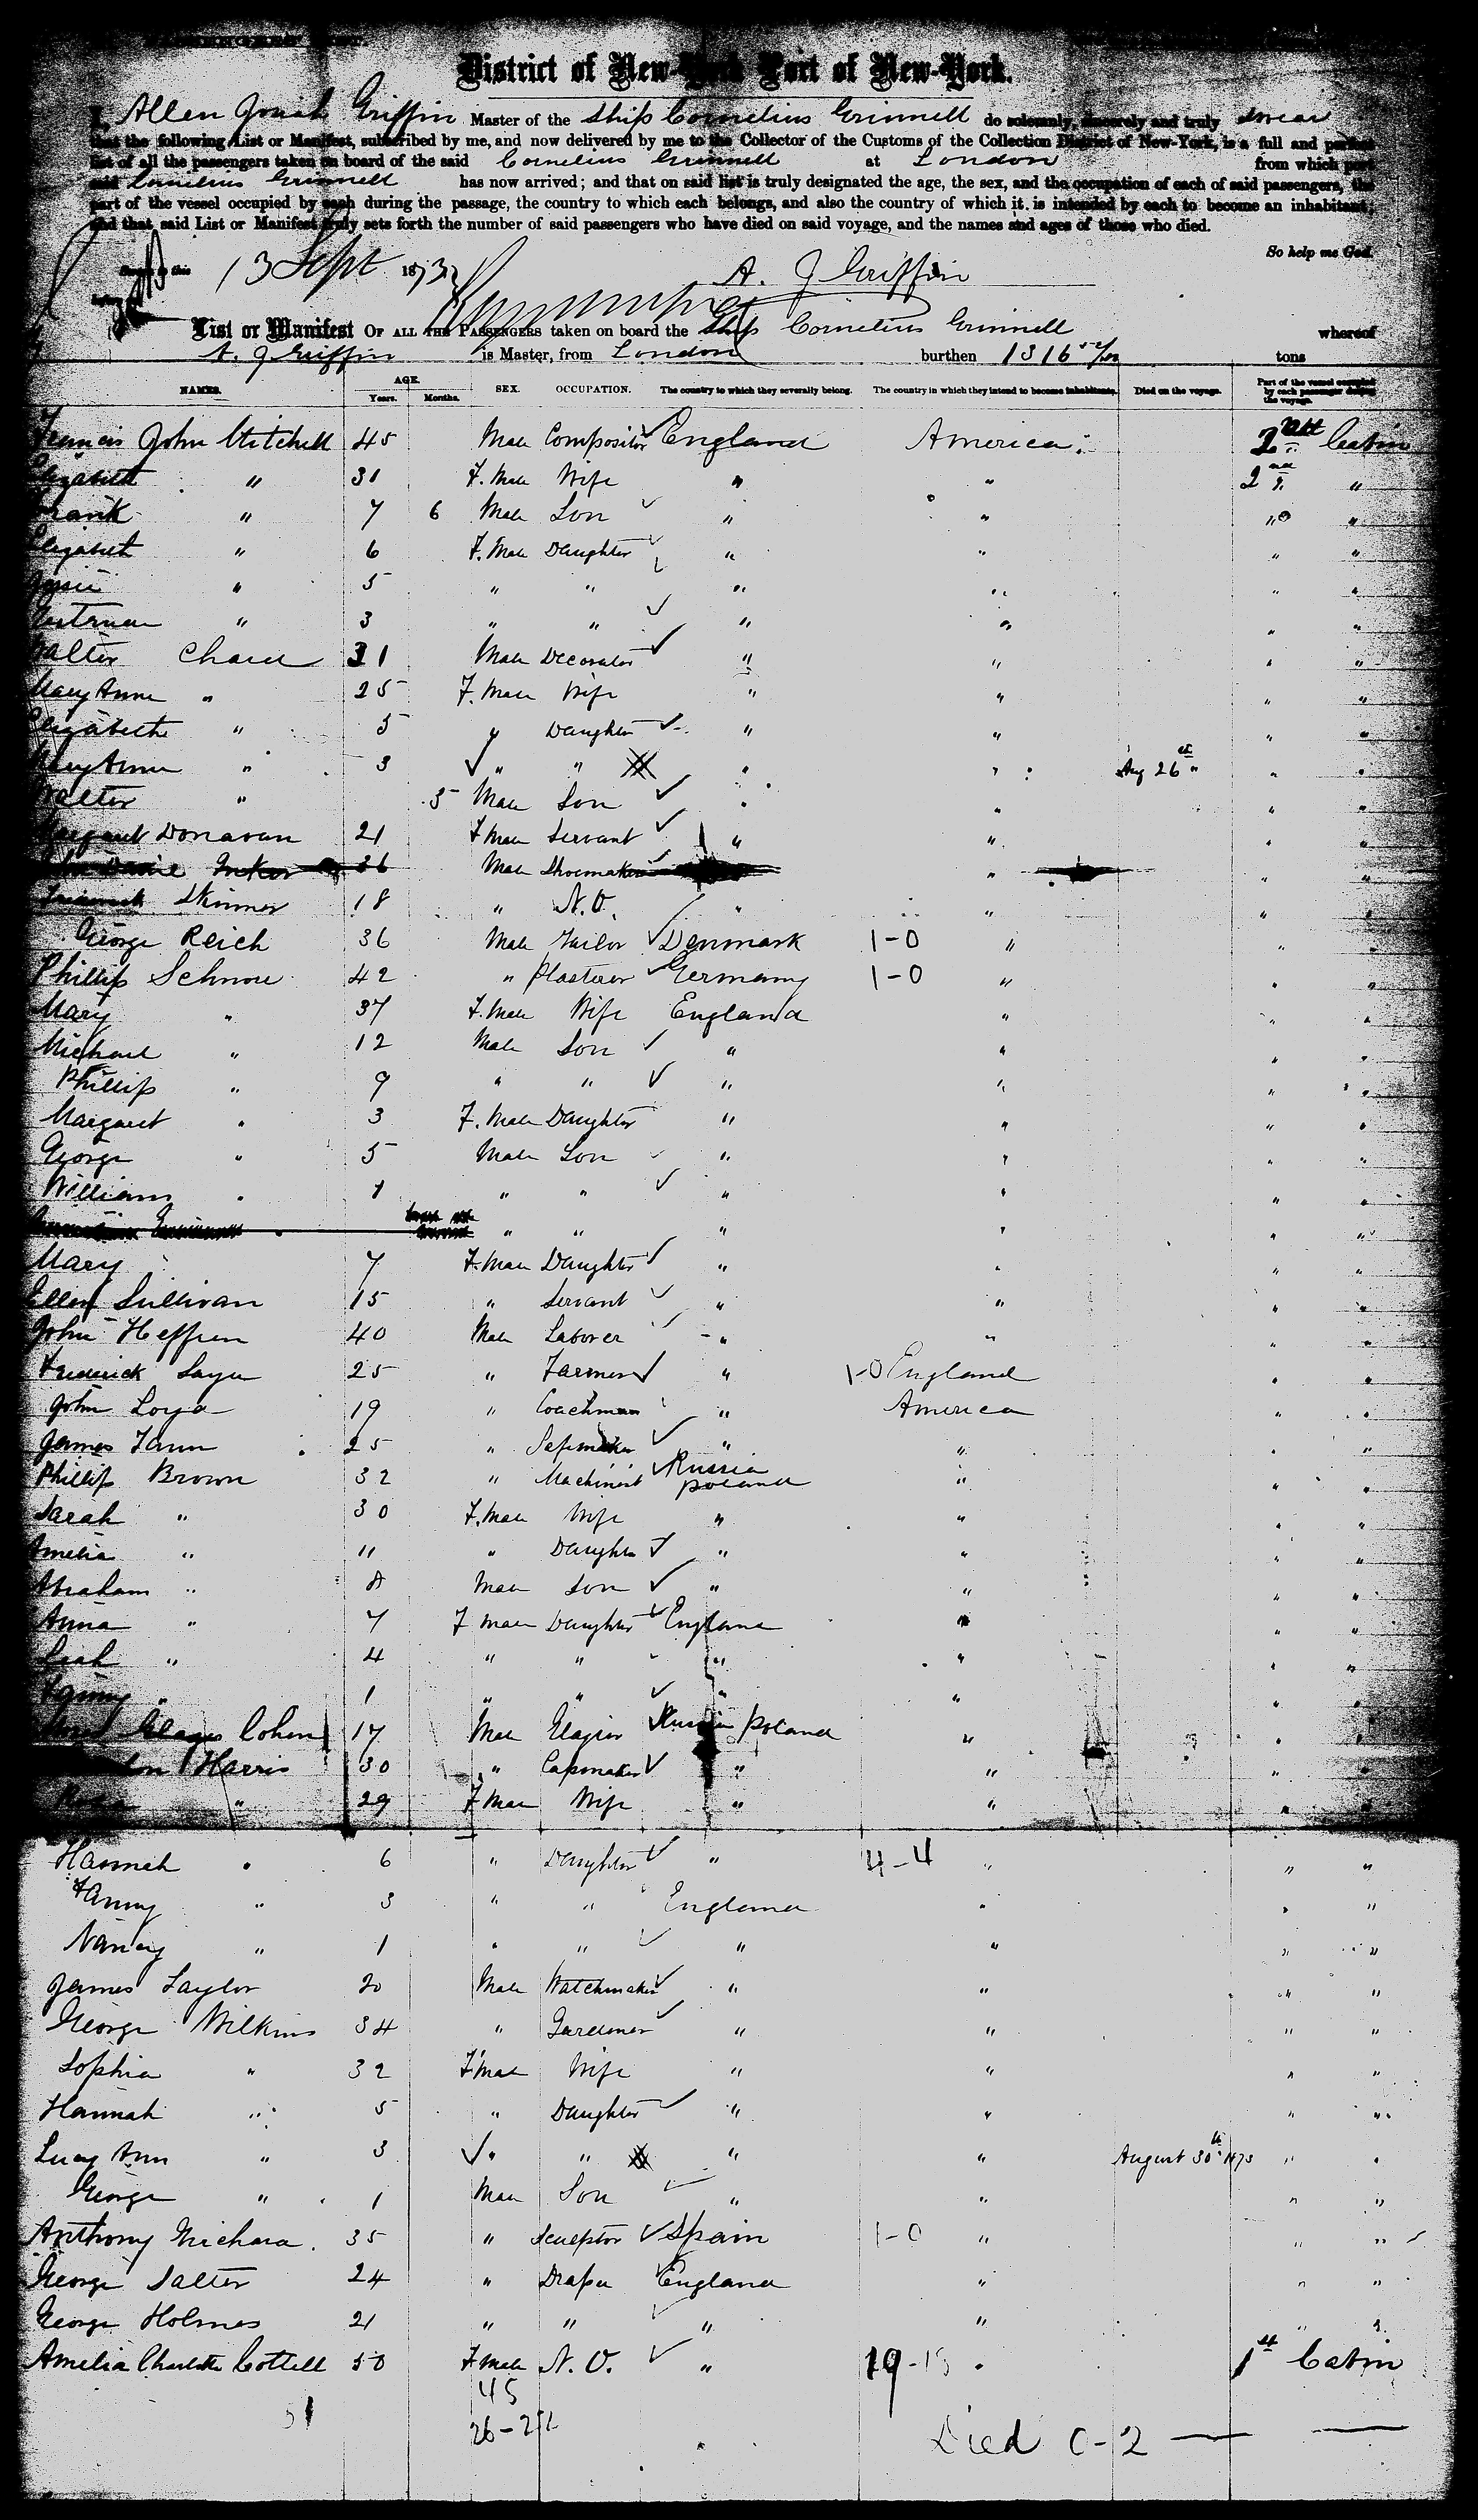 District of New-York Port of New-York.
I, Allen Josiah Griffin Master of the Ship Cornelius Grinnell do solemnly, sincerely and truly swear
that the following List or Manifest, subscribed by me, and now delivered by me to the Collector of the Customs of the Collection District of New-York, is a full and perfect
list of all the passengers taken on board of the said Cornelius Grinnell at London from which port
said Cornelius Grinnell has now arrived; and that on said list is truly designated the age, the sex, and the occupation of each of said passengers, the
part of the vessel occupied by each during the passage, the country to which each belongs, and also the country of which it is intended by each to become an inhabitant;
and that said List or Manifest truly sets forth the number of said passengers who have died on said voyage, and the names and ages of those who died.
So help me God.
this 13 Sept 1873 A. J Griffin
List or Manifest OF ALL THE PASSENGERS taken on board the Ship Cornelius Grinnell whereof
A. J Griffin is Master, from London burthen 1316 tons
NAMES. AGE. Years. Months. SEX. OCCUPATION. The country to which they severally belong. The country in which they intend to become inhabitants. Died on the voyage. Part of the vessel occupied by each passenger during the voyage.
Francis John Mitchell 45 Male Compositor England America 2nd Cabin
Elizabeth " 31 F.Male Wife " " 2nd "
Frank " 7 6 Male Son " " " "
Elizabeth " 6 F.Male Daughter " " " "
" 5 " " " " " "
" 3 " " " " " "
Walter Chard 31 Male Decorator " " " "
Mary Anne " 25 F.Male Wife " " " "
Elizabeth " 5 " Daughter " " " "
Mary Anne " 3 " " " " Aug 26th " "
Walter " 5 Male Son " " " "
Margaret Donavan 21 F Male Servant " " " "
36 Male Shoemaker " " "
Skinner 18 " N.O. " " "
George Reich 36 Male Tailor Denmark 1-0 " " "
Phillip Schnou 42 " Plasterer Germany 1-0 " " "
Mary " 37 F.Male Wife England " " "
Michael " 12 Male Son " " " "
Phillip " 9 " " " " " "
Margaret " 3 F.Male Daughter " " " "
George " 5 Male Son " " " "
William " 1 " " " " " "
" " " " " "
Mary 7 F.Male Daughter " " " "
Ellen Sullivan 15 " Servant " " " "
John Heffren 40 Male Laborer " " " "
Frederick Sayer 25 " Farmer " 1-0 England " "
John Loya 19 " Coachman " America " "
James Tann 25 " " " " "
Phillip Brown 32 " Machinist Russia Poland " " "
Sarah " 30 F.Male Wife " " " "
Amelia " 11 " Daughter " " " "
Abraham " 8 Male Son " " " "
Anna " 7 F Male Daughter England " " "
Leah " 4 " " " " " "
Fanny " 1 " " " " " "
Cohen 17 Male Glazier Russian Poland " " "
Harris 30 " Capmaker " " " "
" 29 F Male Wife " " " "
Hannah " 6 " Daughter " 4-4 " " "
Fanny " 3 " " England " " "
Nancy " 1 " " " " " "
James Taylor 20 Male Watchmaker " " " "
George Wilkins 34 " Gardener " " " "
Sophia " 32 F Male Wife " " " "
Hannah " 5 " Daughter " " " "
Lucy Ann " 3 " " " " August 30th 1873 " "
George " 1 Male Son " " " "
Anthony Nichara 35 " Sculptor Spain 1-0 " " "
George Salter 24 " Draper England " " "
George Holmes 21 " " " " " "
Amelia Charlotte Cottell 50 F Male N.O. " 19-15 " 1st Cabin
51 45
26-25
Died 0-2